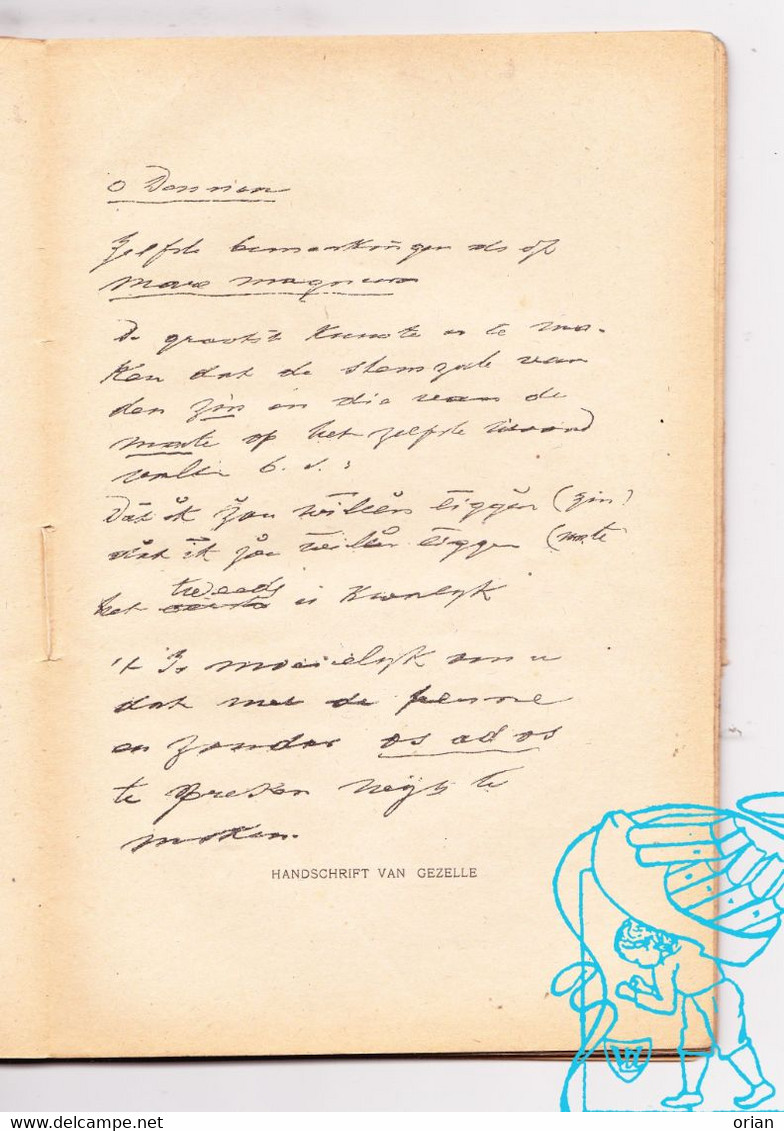 o Dennen
Zelfste bemerkingen als op
mare magnum
De grootste kunste is te ma-
ken dat de stemzate van
den zin en die van de
mate op het zelfste woord
valle b. v. :
Dat ik zou willen liggen (zin)
dat ik zou willen liggen (mate
tweede
het is kwalijk
't Is moeielijk om u
dat met de penne
en zonder os ad os
te spreken wijs te
maken.
HANDSCHRIFT VAN GEZELLE
Delcampe.net
orian